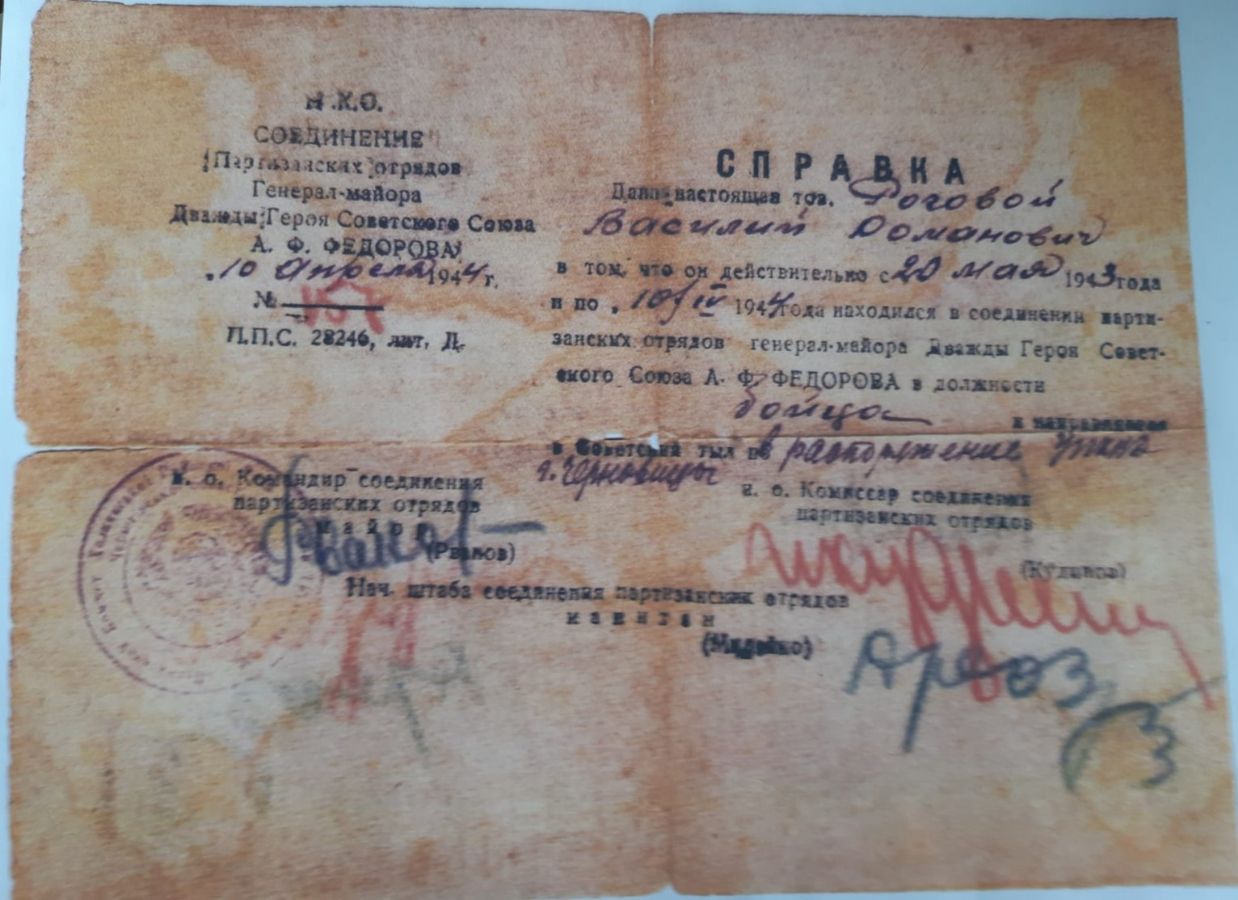 Н.К.О.
СОЕДИНЕНИЕ
Партизанских отрядов
Генерал-майора
Дважды Героя Советского Союза
А. Ф. ФЕДОРОВА
10 Апреля 1944 г.
№ 157
П.П.С. 28246, лит. Д.
СПРАВКА
Дана настоящая тов. Роговой
Василий Романович
в том, что он действительно с 20 мая 1943 года
и по 10/IV 1944 года находился в соединении парти-
занских отрядов генерал-майора Дважды Героя Совет-
ского Союза А. Ф. ФЕДОРОВА в должности
бойца и направляется
в Советский тыл в распоряжение
г. Черновицы
и. о. Командир соединения
партизанских отрядов
майор
(Рванов)
и. о. Комиссар соединения
партизанских отрядов
Нач. штаба соединения партизанских отрядов
капитан